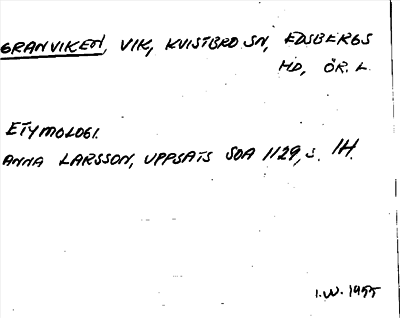 GRANVIKEN, VIK, KVISTBRO SN, EDSBERGS
HD, ÖR. L.
ETYMOLOGI.
ANNA LARSSON, UPPSATS SOA 1129, S. 14.
I.W. 1955